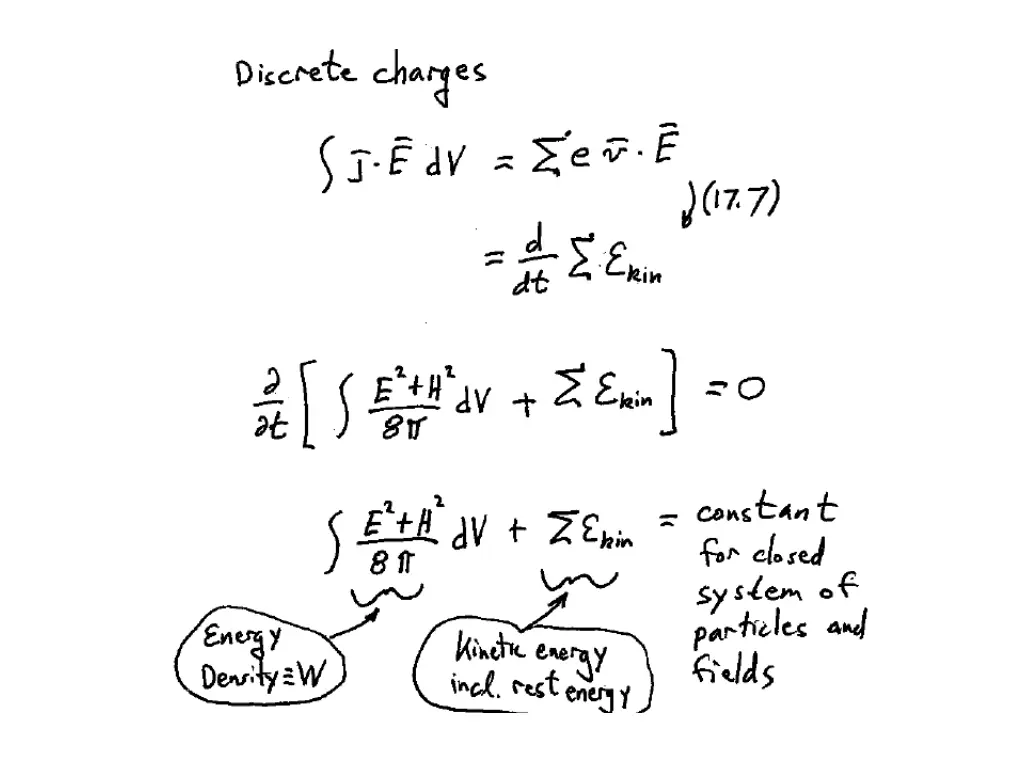 Discrete charges
∫ j̄·Ē dV = Σ e v̄·Ē
(17.7)
= d/dt Σ ℰkin
∂/∂t [ ∫ (E²+H²)/8π dV + Σ ℰkin ] = 0
∫ (E²+H²)/8π dV + Σ ℰkin = constant
for closed
system of
particles and
fields
Energy
Density ≡ W
Kinetic energy
incl. rest energy